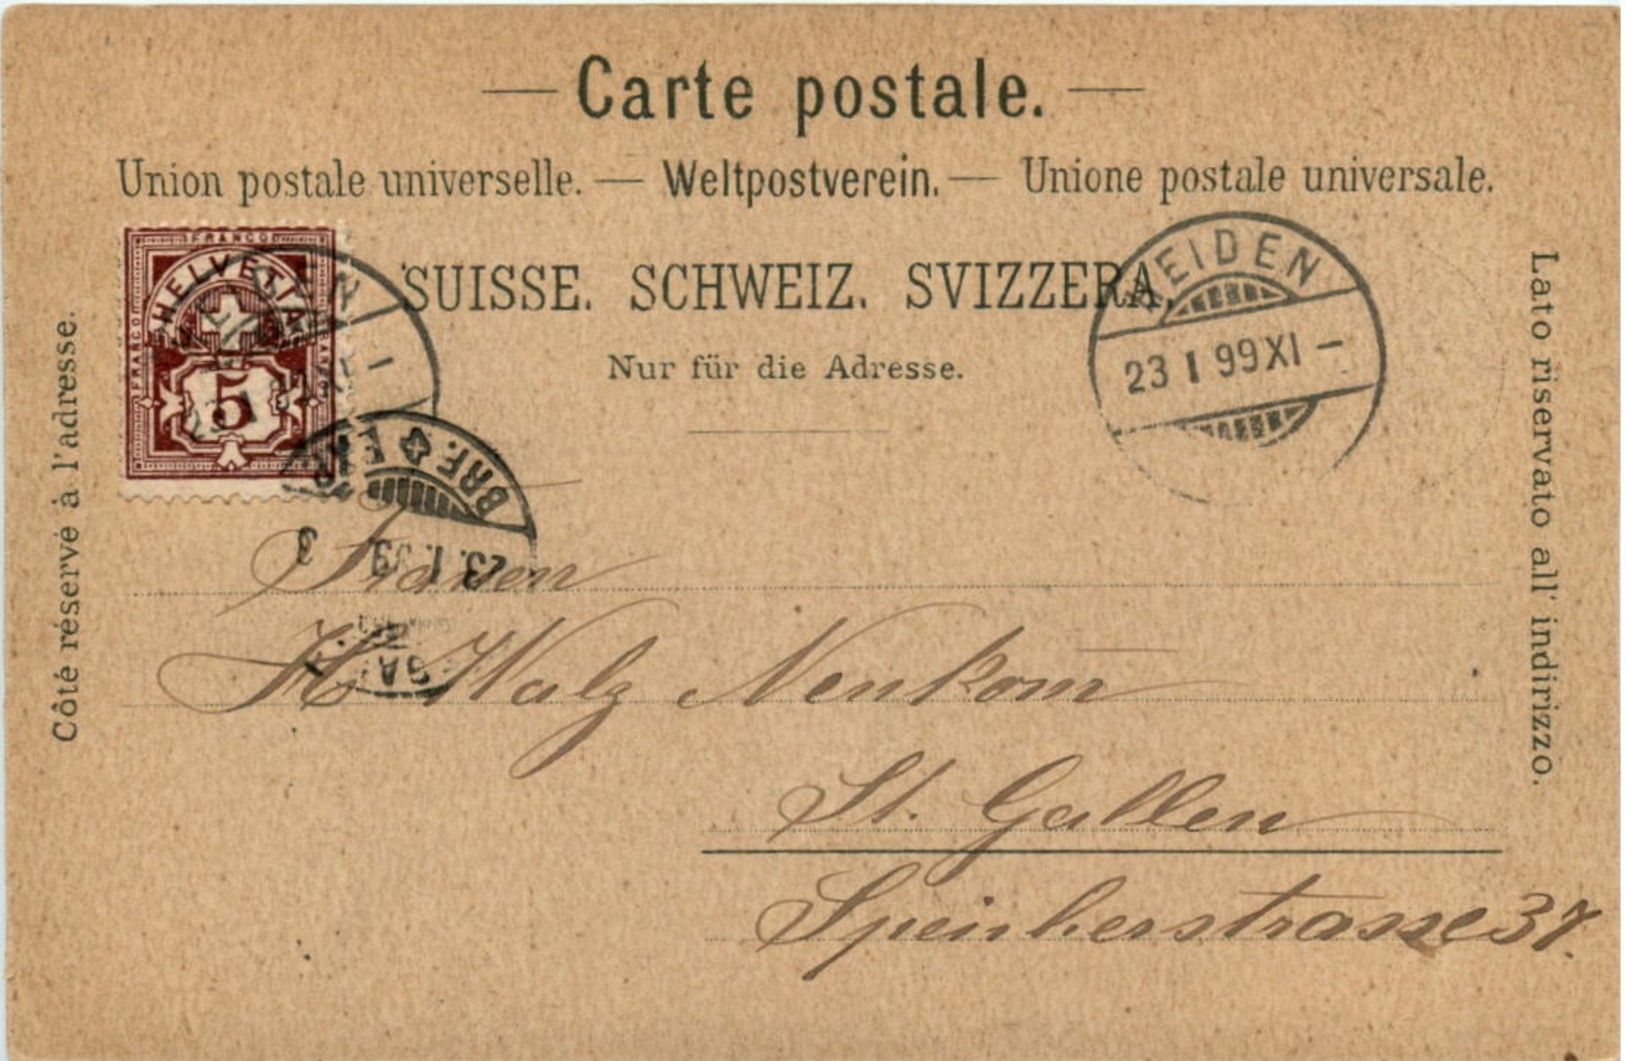 Carte postale.
Union postale universelle. — Weltpostverein. — Unione postale universale.
SUISSE. SCHWEIZ. SVIZZERA.
Nur für die Adresse.
Côté réservé à l'adresse.
Lato riservato all' indirizzo.
FRANCO
FRANCO
HELVETIA
5
HEIDEN
23 I 99 XI –
BRF.
23. I. 99 3
Frauen
H Walz Neukom
St. Gallen
Speicherstrasse 37.